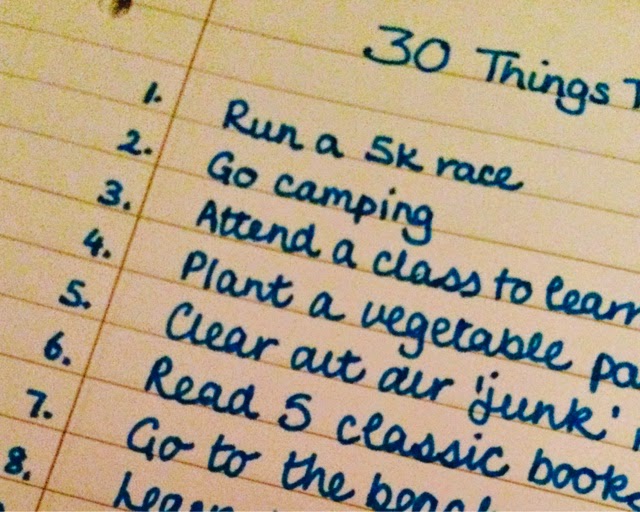 30 Things T
1. Run a 5k race
2. Go camping
3. Attend a class to learn
4. Plant a vegetable pa
5. Clear out our 'junk'
6. Read 5 classic books
7. Go to the
8. Learn